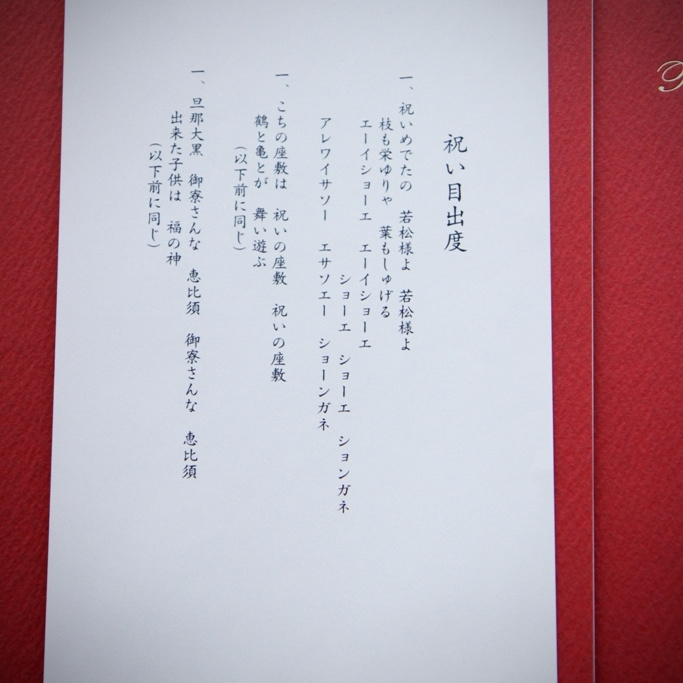 祝い目出度
一、祝いめでたの 若松様よ 若松様よ
枝も栄ゆりゃ 葉もしゅげる
エーイショーエ エーイショーエ
ショーエ ショーエ ションガネ
アレワイサソー エサソエー ショーンガネ
一、こちの座敷は 祝いの座敷 祝いの座敷
鶴と亀とが 舞い遊ぶ
(以下前に同じ)
一、旦那大黒 御寮さんな 恵比須 御寮さんな 恵比須
出来た子供は 福の神
(以下前に同じ)